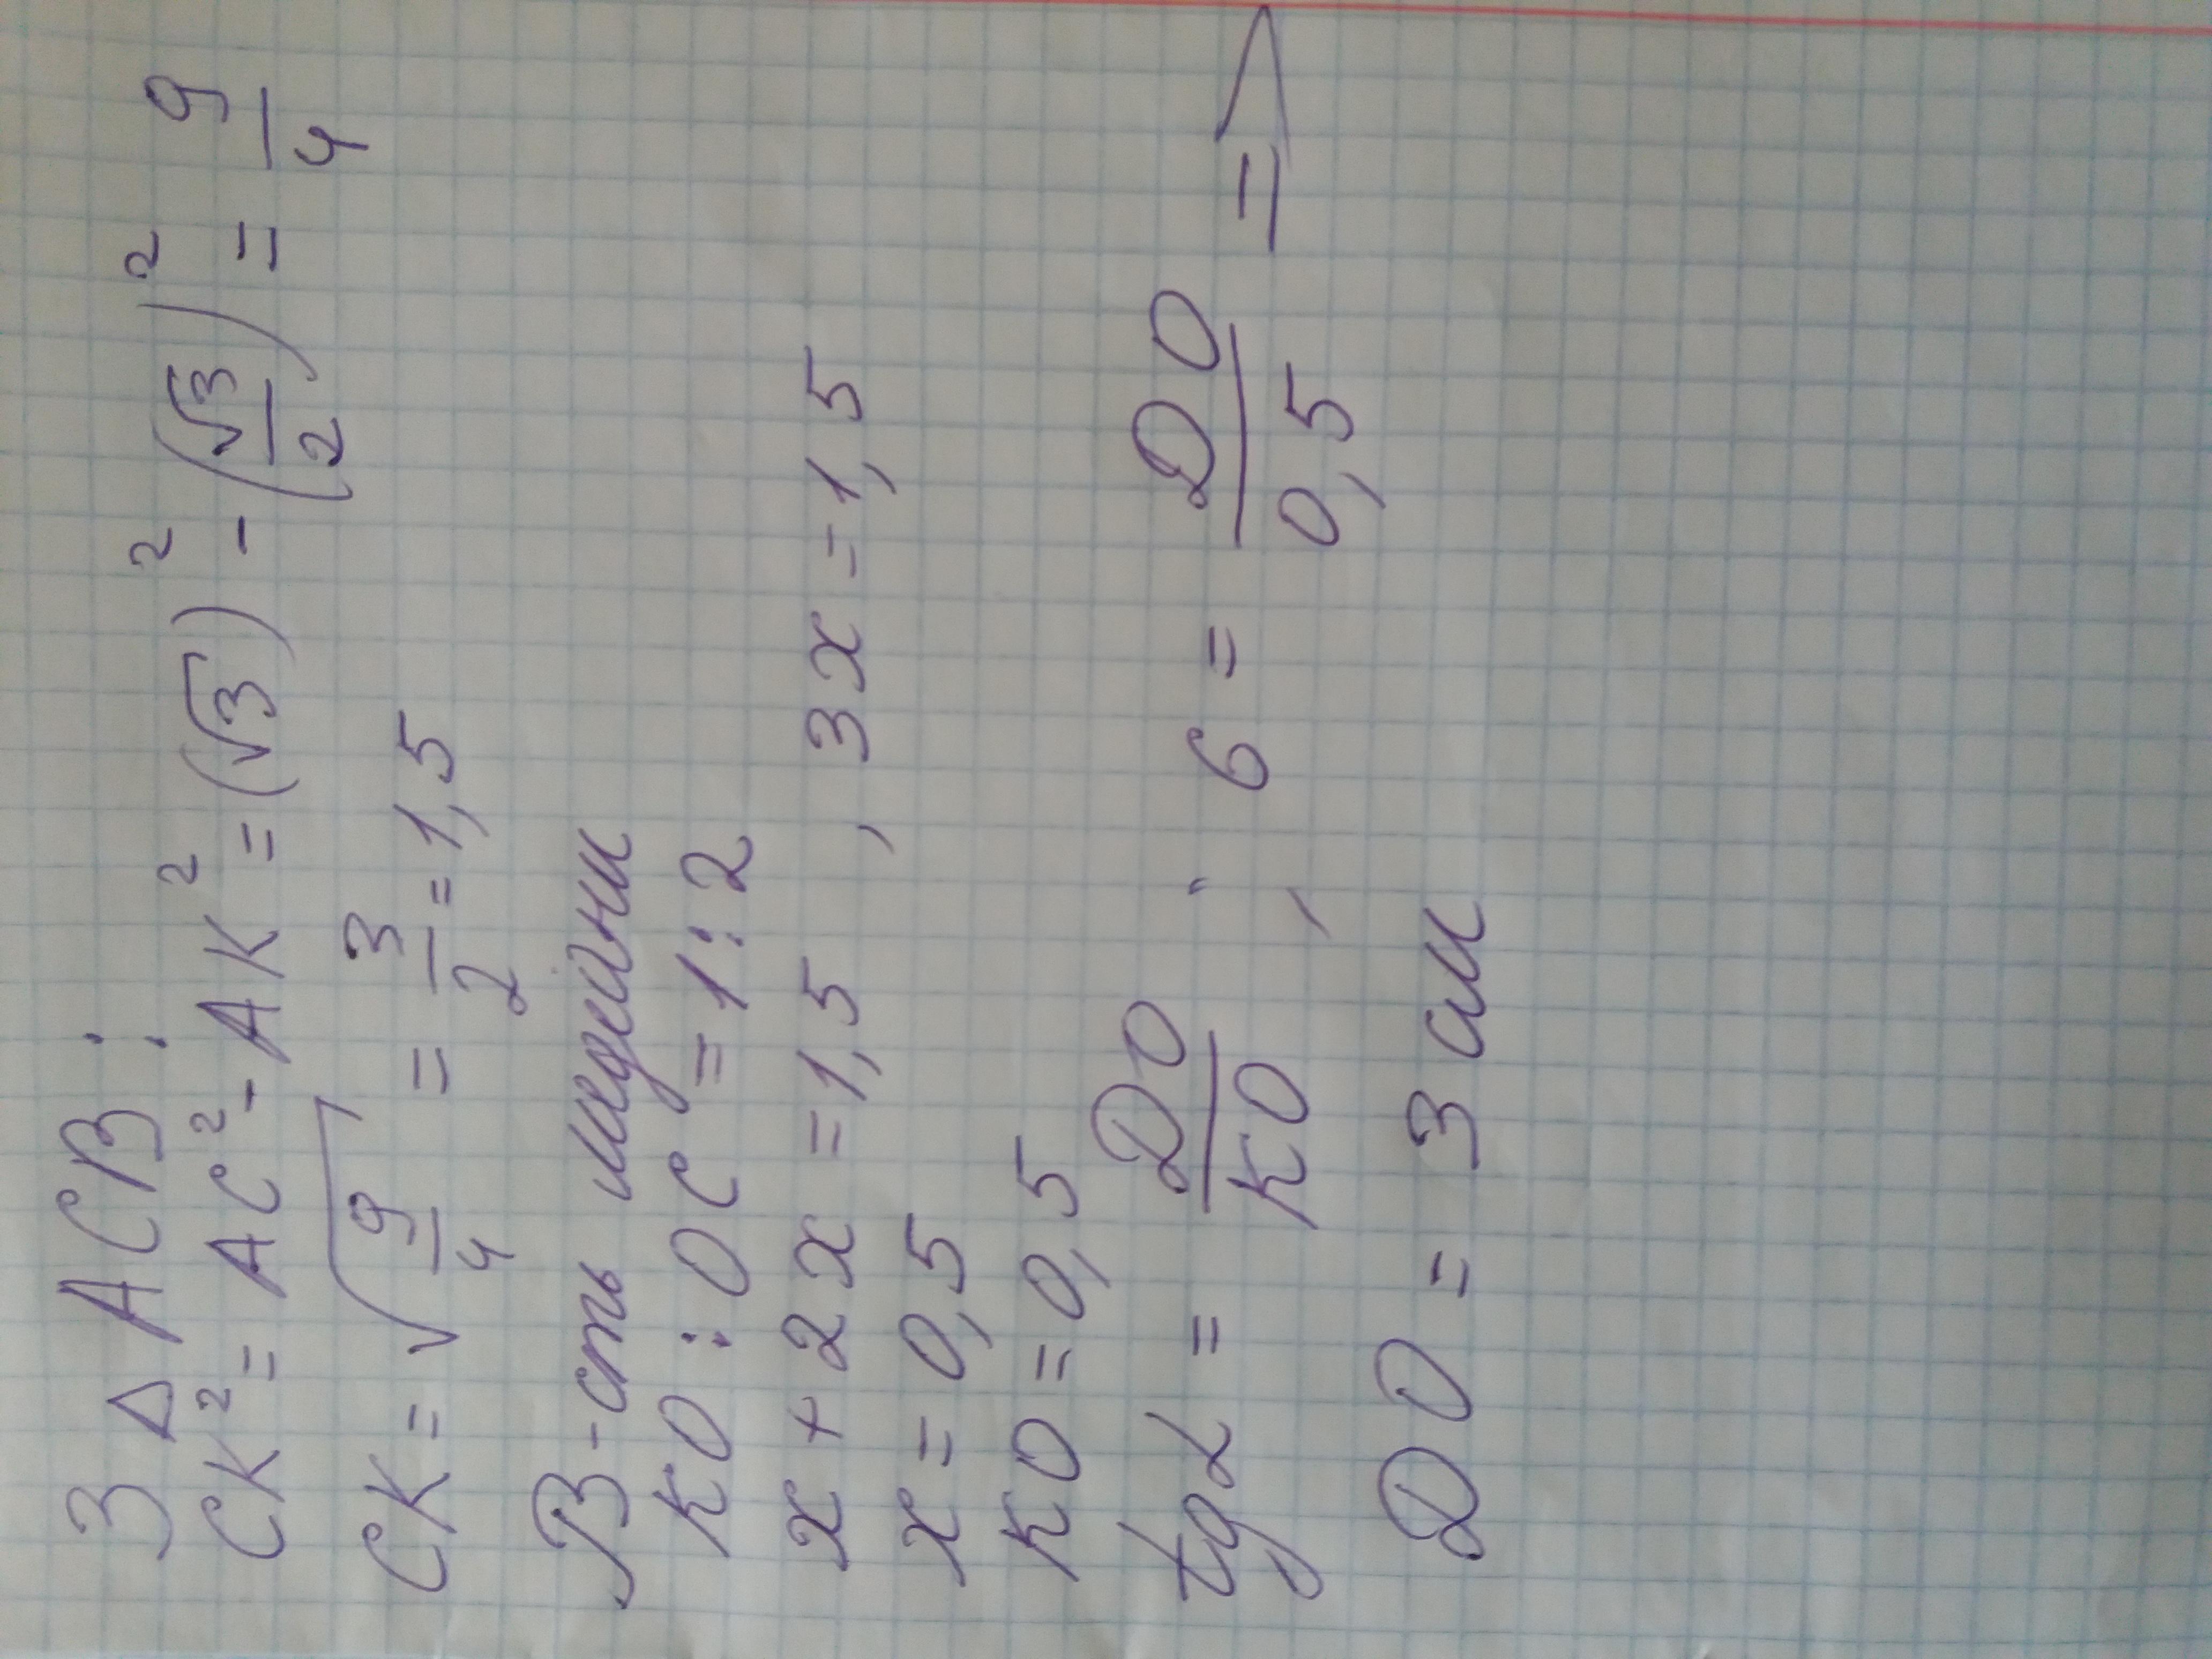 З Δ ACB:
CK² = AC² - AK² = (√3)² - (√3/2)² = 9/4
CK = √(9/4) = 3/2 = 1,5
В-сть медіани
KO : OC = 1 : 2
x + 2x = 1,5 , 3x = 1,5
x = 0,5
KO = 0,5
tgα = DO/KO ; 6 = DO/0,5 =>
DO = 3 см